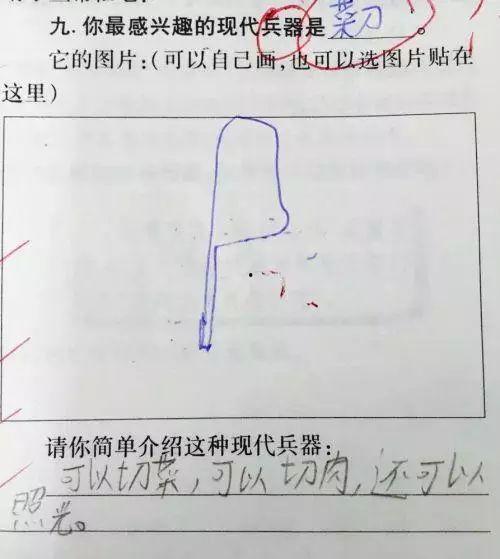 九. 你最感兴趣的现代兵器是 菜刀 。
它的图片:(可以自己画,也可以选图片贴在
这里)
请你简单介绍这种现代兵器:
可以切菜,可以切肉,还可以
照光。